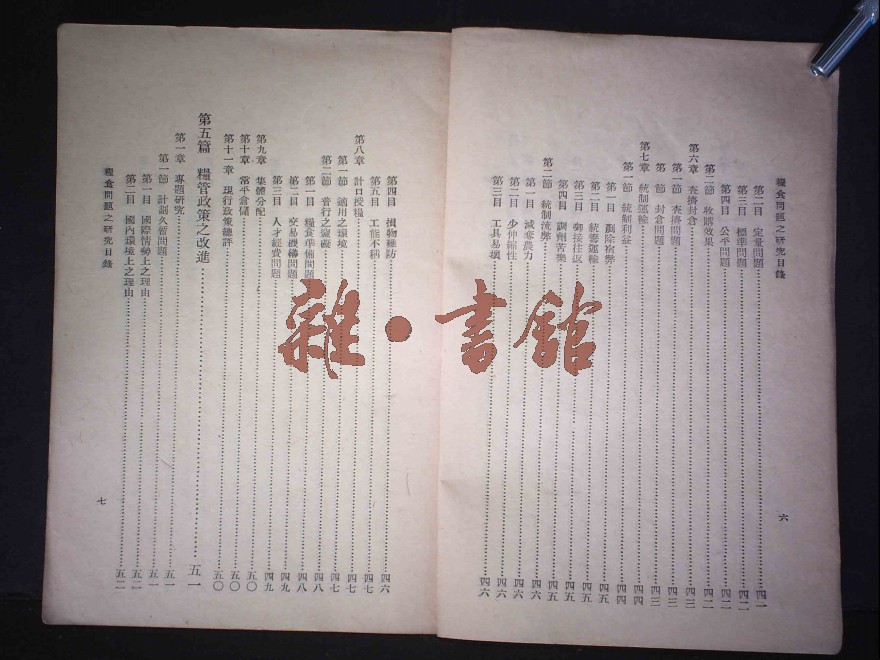 糧食問題之研究目錄
第二目 定量問題 四二
第三目 標準問題 四二
第四目 公平問題 四二
第二節 收購效果 四二
第六章 查擠封倉 四三
第一節 查擠問題 四三
第二節 封倉問題 四三
第七章 統制運輸 四四
第一節 統制利益 四四
第一目 剷除宿弊 四五
第二目 統籌運輸 四五
第三目 銜接往返 四五
第四目 調劑苦樂 四五
第二節 統制流弊 四六
第一目 減奪農力 四六
第二目 少伸縮性 四六
第三目 工具易壞 四六
六
第四目 損物難防 四六
第五目 工能不稱 四七
第八章 計口授糧 四七
第一節 適用之環境 四七
第二節 實行之癥礙 四八
第一目 糧食準備問題 四八
第二目 交易機構問題 四九
第三目 人才經費問題 四九
第九章 集體分配 五〇
第十章 常平倉儲 五〇
第十一章 現行政策總評 五〇
第五篇 糧管政策之改進 五一
第一章 專題研究 五一
第一節 計劃久暫問題 五一
第一目 國際情勢上之理由 五二
第二目 國內環境上之理由 五二
糧食問題之研究目錄
七
雜·書館